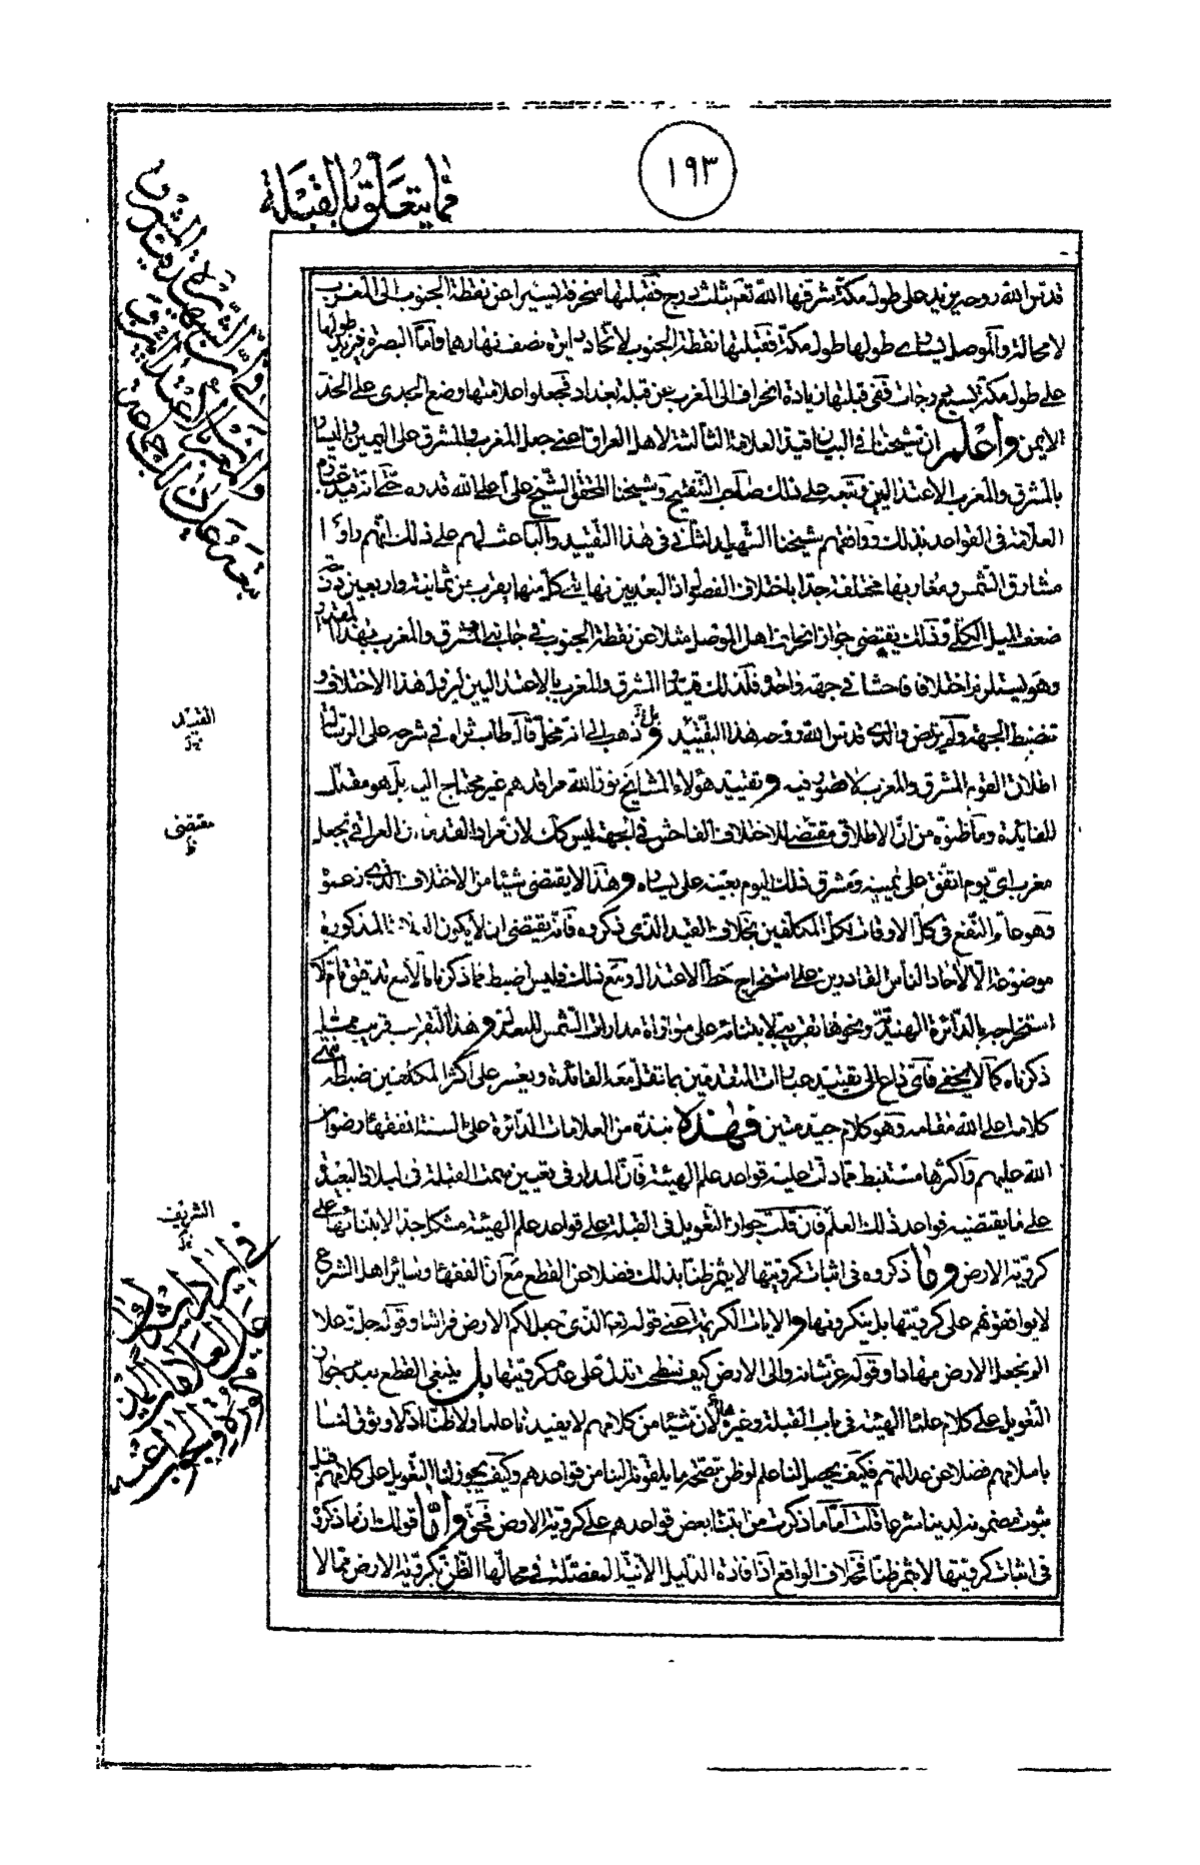 ١٩٣
فيما يتعلق بالقبلة
قدس الله روحه يزيد على طول مكة شرفها الله تعالى بثلث درج فقبلتها منحرفة يسيرا عن نقطة الجنوب الى المغرب
لا محالة والموصل يساوي طولها طول مكة فقبلتها نقطة الجنوب لاتحاد دايرة نصف نهارهما واما البصرة فيزيد طولها
على طول مكة بسبع درجات ففي قبلتها زيادة انحراف الى المغرب عن قبلة بغداد فجعلوا علامتها وضع الجدى على الخد
الايمن واعلم ان شيخنا في البيان قيد العلامة الثالثة لاهل العراق اعنى جعل المغرب والمشرق على اليمين واليسار
بالمشرق والمغرب الاعتداليين وتبعه على ذلك صاحب التنقيح وشيخنا المحقق الشيخ على اعلى الله قدره حتى انه قيد عبارة
العلامة في القواعد بذلك ووافقهم شيخنا الشهيد الثاني في هذا التقييد والباعث لهم على ذلك انهم راوا
مشارق الشمس ومغاربها مختلفة جدا باختلاف الفصول اذ البعد بين نهايتى كل منها يقرب من ثمانية واربعين درجة
ضعف الميل الكلى وذلك يقتضى جواز انحراف اهل الموصل مثلا عن نقطة الجنوب في جانبى المشرق والمغرب بهذا المقدار
وهو يستلزم اختلافا فاحشا في جهة واحدة فلذلك قيدوا المشرق والمغرب بالاعتداليين ليزول هذا الاختلاف و
تنضبط الجهة ولم يرتض والدى قدس الله روحه هذا التقييد وذهب الى انه مخل قال طاب ثراه في شرحه على الرسالة
اطلاق القوم المشرق والمغرب لا قصور فيه وتقييد هؤلاء المشايخ نور الله مراقدهم غير محتاج اليه بل هو مقلل
للفائدة وما ظنوه من ان الاطلاق مقتض للاختلاف الفاحش في الجهة ليس كك لان مراد القدماء ان العراقى يجعل
مغرب اى يوم اتفق على يمينه ومشرق ذلك اليوم بعينه على يساره وهذا لا يقتضى شيئا من الاختلاف الذى زعموه
وهو عام النفع في كل الاوقات لكل المكلفين بخلاف القيد الذى ذكروه فانه يقتضى ان لا يكون المذكورة
موضوعة الا لآحاد الناس القادرين على استخراج خط الاعتدال ومع ذلك فليس اضبط مما ذكرناه الا مع تدقيق تام لا
استخراجه بالدائرة الهندية ونحوها تقريبى لابتنائه على موازاة مدارات الشمس للمعدل وهذا التقريب قريب مما
ذكرناه كما لا يخفى فاى داع الى تقييد عبارات المتقدمين بما تقل معه الفائدة ويعسر على اكثر المكلفين ضبطه انتهى
كلامه اعلى الله مقامه وهو كلام جيد متين فهذه نبذة من العلامات الدائرة على السنة الفقهاء رضوان
الله عليهم واكثرها مستنبط مما دلت عليه قواعد علم الهيئة فان المدار في تعيين سمت القبلة في البلاد البعيدة
على ما يقتضيه قواعد ذلك العلم فان قلت جواز التعويل في القبلة على قواعد علم الهيئة مشكل جدا لابتنائها على
كروية الارض وما ذكروه في اثبات كرويتها لا يثمر ظنا بذلك فضلا عن القطع مع ان الفقهاء وسائر اهل الشرع
لا يوافقونهم على كرويتها بل ينكرونها والايات الكريمة اعنى قوله تعالى الذى جعل لكم الارض فراشا وقوله جل وعلا
الم نجعل الارض مهادا وقوله عز شانه والى الارض كيف سطحت تدل على عدم كرويتها بل ينبغى القطع بعدم جواز
التعويل على كلام علماء الهيئة في باب القبلة وغيرها لان شيئا من كلامهم لا يفيدنا علما ولا ظنا اذ لا وثوق لنا
باسلامهم فضلا عن عدالتهم فكيف يحصل لنا علم او ظن بصحة ما يلقونه الينا من قواعدهم وكيف يجوز لنا التعويل على كلامهم قبل
ثبوت مضمونه لدينا شرعا قلت اما ما ذكرت من ابتناء بعض قواعدهم على كروية الارض فحق واما قولك ان ما ذكروه
في اثبات كرويتها لا يثمر ظنا فخلاف الواقع اذ افادة الدليل الانى المفصلة في محالها الظن بكروية الارض مما لا
القيد
يد
مقتضى
الشريف
يد